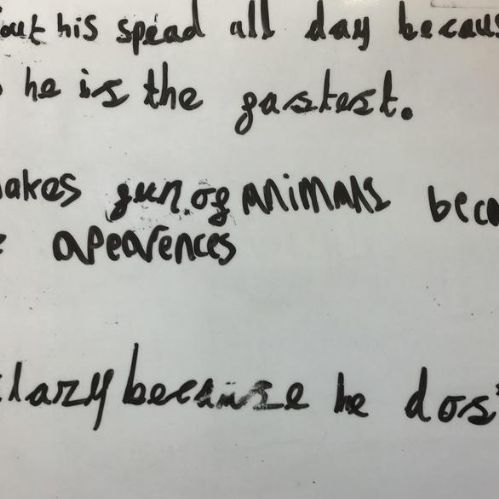 out his spead all day becaus
he is the fastest.
akes fun of ANiMALS beca
apearences
lazy because he dos'